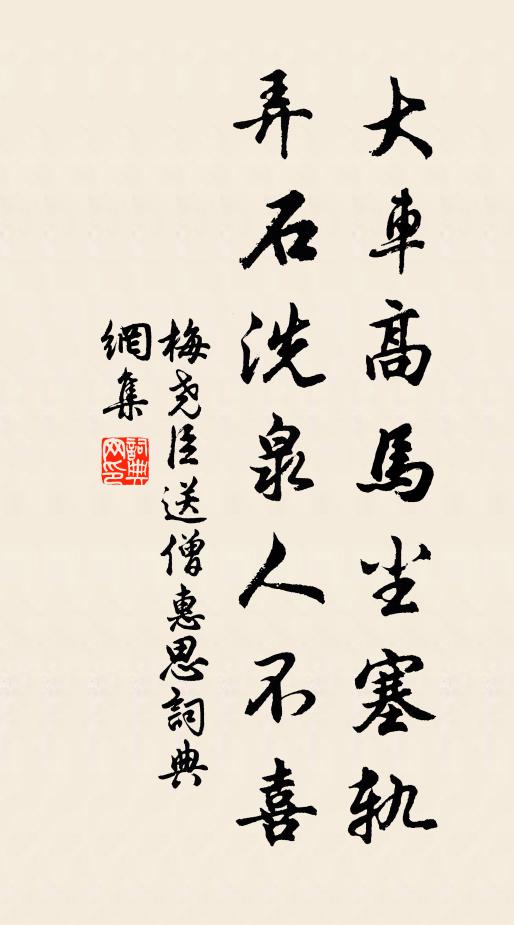 大車高馬尘塞軌
弄石洗泉人不喜
梅尧臣送僧惠思詞典
網集
詞典网印